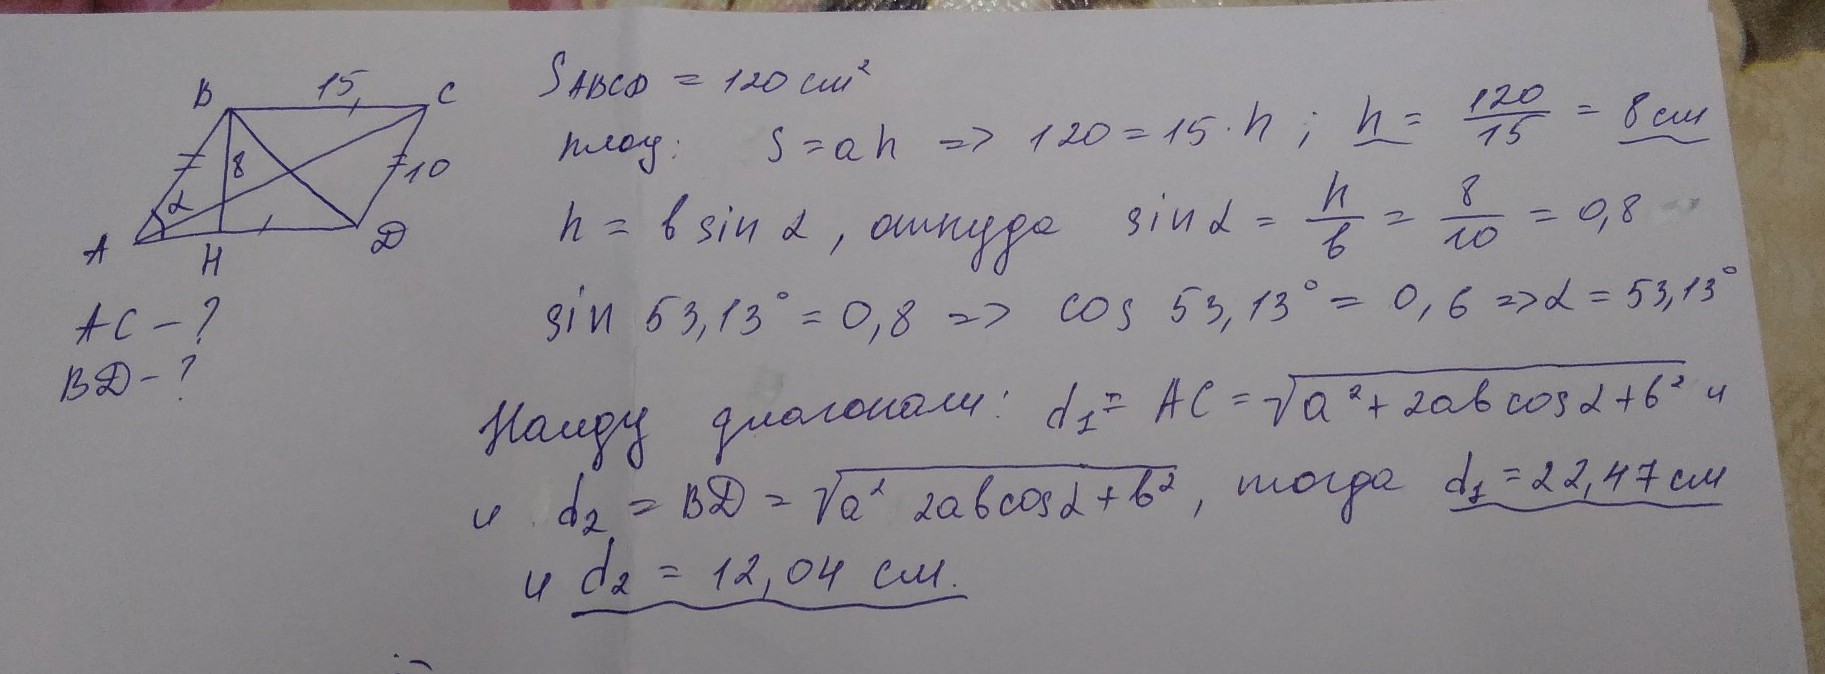 B 15 C
8
10
α
A H D
AC - ?
BD - ?
S ABCD = 120 см²
площ: S = ah => 120 = 15 · h ; h = 120/15 = 8 см
h = b sin α, откуда sin α = h/b = 8/10 = 0,8
sin 53,13° = 0,8 => cos 53,13° = 0,6 => α = 53,13°
Найду диагонали: d₁ = AC = √a² + 2ab cos α + b² и
и d₂ = BD = √a² 2ab cos α + b², тогда d₁ = 22,47 см
и d₂ = 12,04 см.